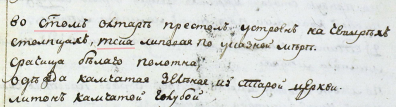 во стомъ олтарѣ престолъ устроенъ на четырехъ
столпцахъ, тсца липовая по указной мѣрѣ.
срачица бѣлаго полотна
одежда камчатая зеленая из старой церкви.
литонъ камчатой голубой